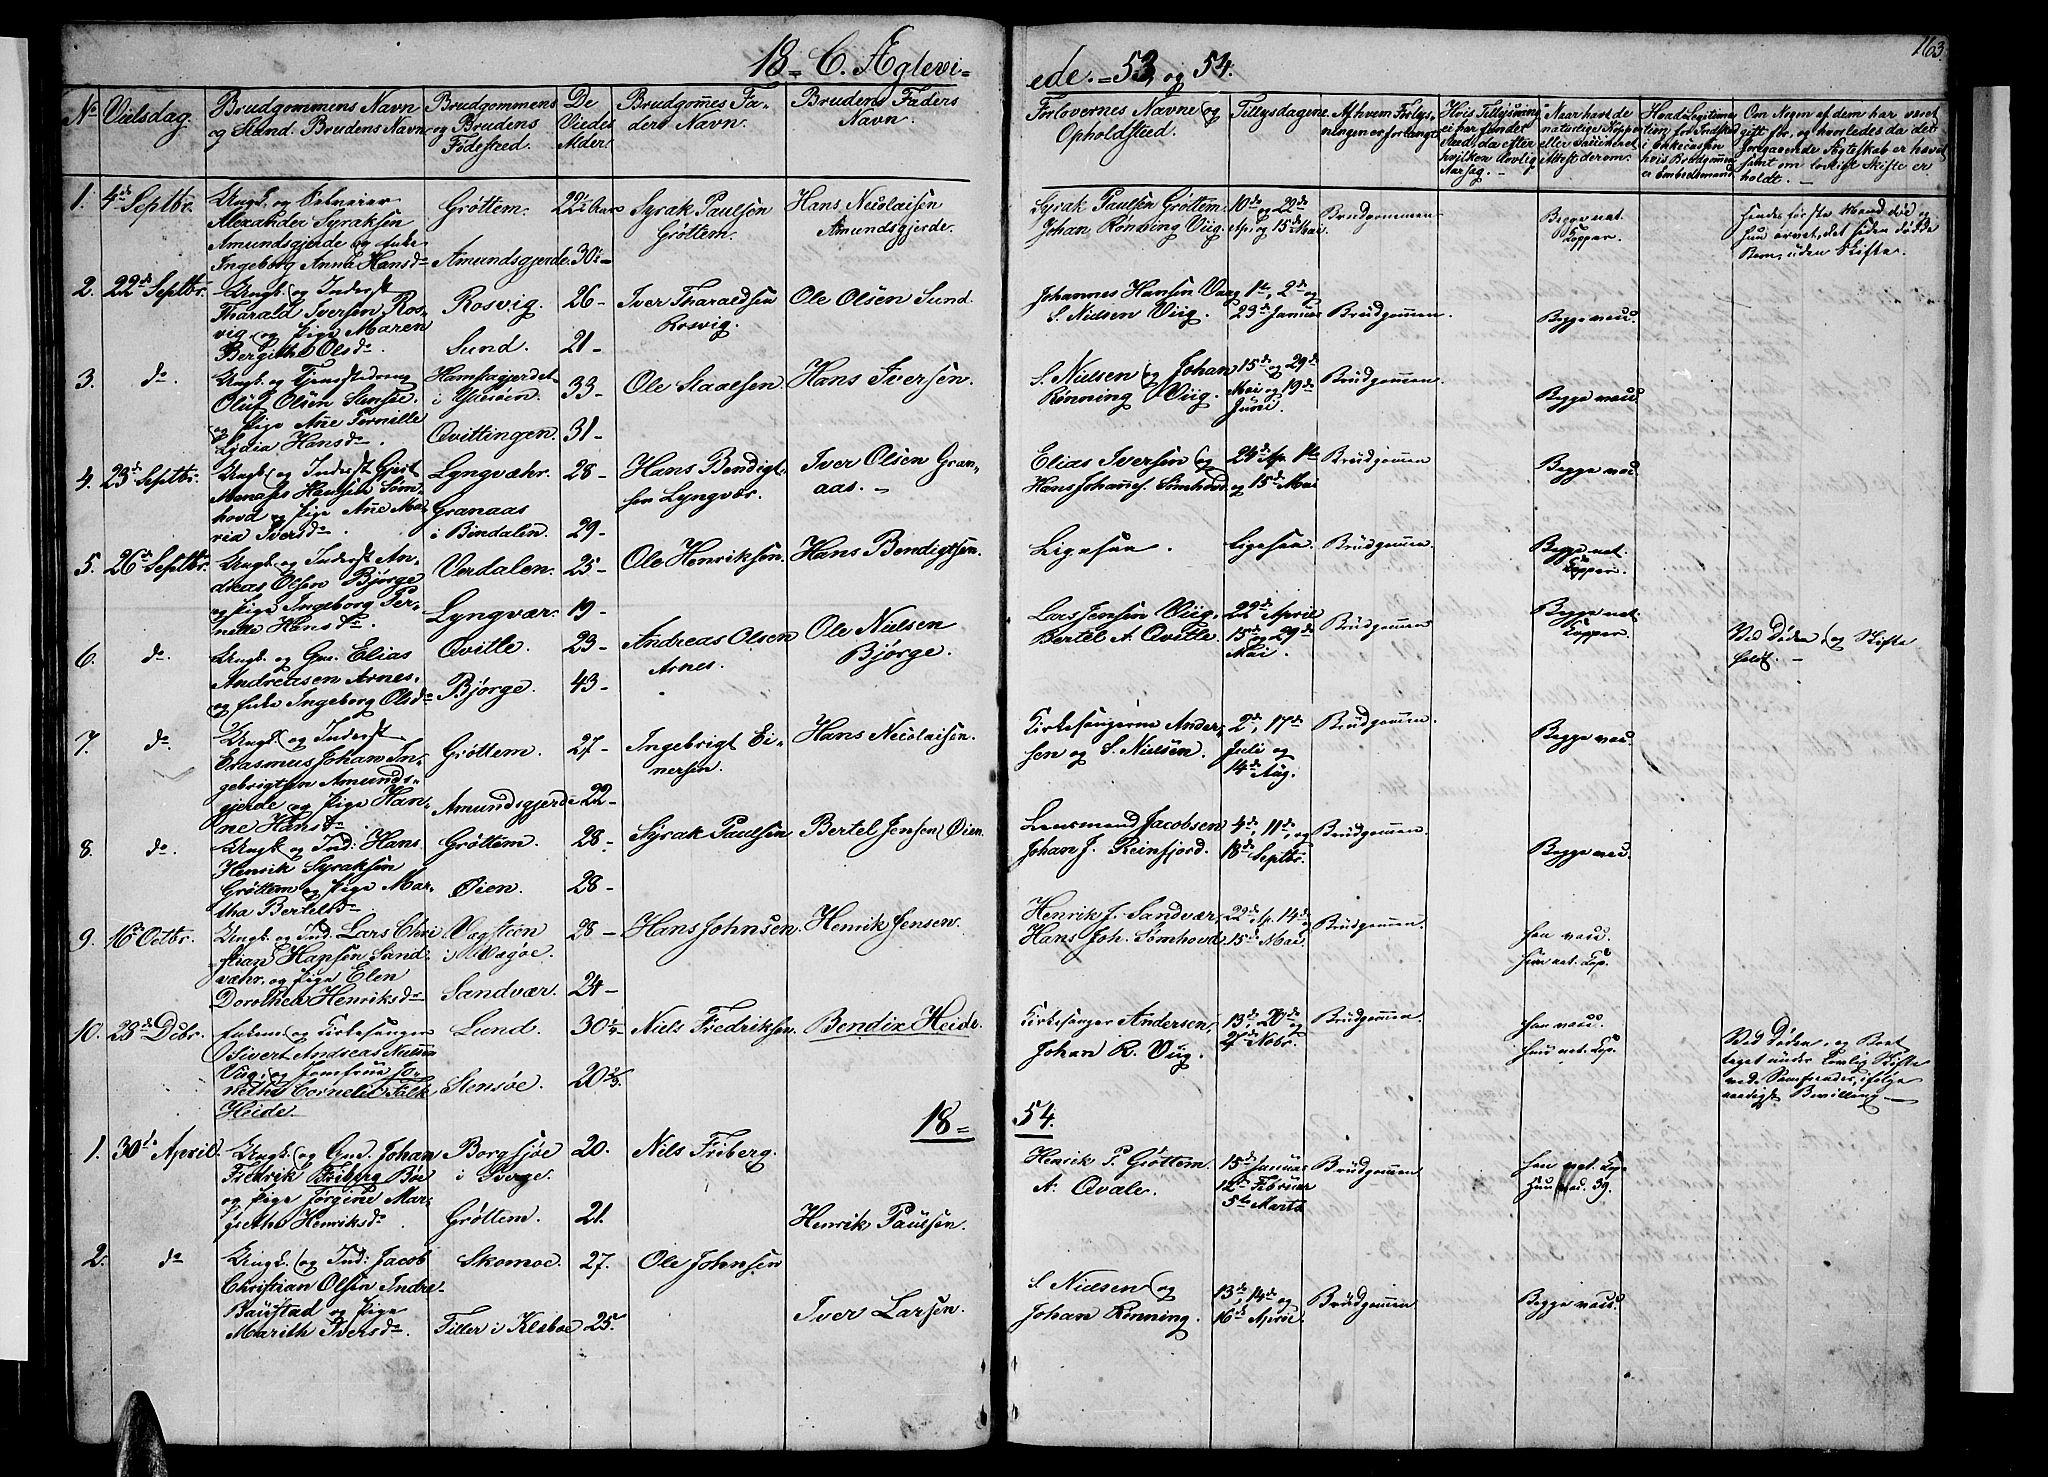 163
18 C. Ægtevi-
ede. 53, og 54.
No
Vielsdag.
Brudgommens Navn
og Stand. Brudens Navn
Brudgommens
og Brudens
Fødested.
De
Viedes
Alder
Brudgom̄es Fa-
ders Navn.
Brudens Faders
Navn.
Forlovernes Navne og
Opholdsted.
Tillysdagene.
Af hvem Forlys-
ningen er forlangt
Hvis Tillysning
ei har fundet
Sted, da efter
hvilken lovlig
Aarsag.
Naar havt de
naturlige Kopper
eller vaccineret
Attest derom.
Om Nogen af dem har været
gift før, og hvorledes da det
foregaaende Ægteskab er hævet
samt om lovligt Skifte er
holdt.
1. 4de Septbr.
Ungk. og
Alexander Syraksen
Amundsgjerde og Enke
Ingeborg Anna Hansdr
Grøttem.
Amundsgjerde.
22
30
Syrak Paulsen
Grøttem.
Hans Nicolaisen
Amundsgjerde.
Syrak Paulsen Grøttem
Johan Rønning Viig.
10de og 22de
Ap. og 15de Mai
Brudgommen
Begge nat.
Kopper.
hendes første Mand død og
hun arvet, det siden dødde
Barn, uden Skifte.
2. 22de Septbr.
Ungk. og Inderst
Tharald Iversen Ros-
vig og Pige Maren
Bergithe Olsdr.
Rosvig.
Sund.
26
21
Iver Tharaldsen
Rosvig.
Ole Olsen Sund.
Johannes Hansen Vaag
S. Nielsen Viig.
1te, 2de og
23de Januar
Brudgom̄en.
Begge vacc.
3. do.
Ungk. og Tjenestedreng
Oluf Olsen
og Pige Ane Pernille
Lydia Hansdr.
Qvittingen.
33
31
Ole Staalsen.
Hans Iversen.
S. Nielsen og Johan
Rønning Viig.
15de og 29de
Mai og 19de
Juni.
Brudgom̄en.
Begge vacc.
4. 23de Septbr.
Ungk. og Inderst
Hansen Søm-
hovd og Pige Ane Ma-
ria Iversdr.
Lyngvæhr.
Granaas
i Bindalen.
28
29
Hans Bendigt-
sen Lyngvær.
Iver Olsen Gran-
aas.
Elias Iversen og
Hans Johannes. Sømhovd
24de Ap. 1te
og 15de Mai
Brudgom̄en
Begge vacc
5. 26de Septbr.
Ungk. og Inderst An-
dreas Olsen Bjørge
og Pige Ingeborg Per-
nelle Hansdr.
Verdalen.
Lyngvær.
25
19
Ole Henriksen.
Hans Bendigtsen.
Ligesaa.
Ligesaa.
Brudgom̄en.
Begge nat.
Kopper.
6. do.
Ungk. og Gm. Elias
Andreasen Arnes,
og Enke Ingeborg Olsdr
Qvitte.
Bjørge.
23
43
Andreas Olsen
Arnes.
Ole Nielsen
Bjørge.
Lars Jensen Viig
Bertel A. Qvitte.
22de April
15de og 29de
Mai.
Brudgom̄en
Begge nat.
Kopper.
Ved Døden, og Skifte
holdt.
7. do.
Ungk. og Inderst
Erasmus Johan In-
gebrigtsen Amunds-
gjerde og Pige Han-
ne Hansdr
Grøttem.
Amundsgjerde
27
22
Ingebrigt Ei-
nersen.
Hans Nicolaisen.
Kirkesangerne Ander-
sen og S. Nielsen.
2de, 17de
Juli og
14de Aug.
Brudgom̄en.
Begge vac.
8. do.
Ungk. og Ind: Hans
Henrik Syraksen
Grøttem og Pige Mar-
tha Bertelsdr
Grøttem.
Øien.
28
28
Syrak Paulsen
Bertel Jensen Øien.
Lensmand Jacobsen
Johan J. Reinfjord.
4de, 11de, og
18de Septbr.
Brudgom̄en.
Begge vac.
9. 16de Octbr.
Ungk. og Ind. Lars Chri
stian Hansen Sand-
væhr. og Pige Elen
Dorothea Henriksdr
Sandvær.
28
24
Hans Johnsen.
Henrik Jensen.
Henrik J. Sandvær,
Hans Joh. Sømhovd
22de Ap. 14de og
15de Mai.
Brudgom̄en.
han vacc.
hun nat. Kop.
10. 28de Dcbr.
Enkem. og Kirkesanger
Sivert Andreas Nielsen
Viig, og Jomfrue
Cornelia Falk
Heide.
Lund.
Stensøe.
30
20
Niels Fredriksen.
Bendix Heide.
Kirkesanger Andersen,
Johan R. Viig.
13de, 20de og
27de Nobr.
Brudgom̄en
han vacc.
hun nat. Kop.
Ved Døden, og
taget under lovlig Skifte
ifølge
naadigst Bevilling
18 54.
1. 30de April.
Ungk. og Gm. Johan
Fredrik Friberg Bøe
og Pige Jørgine Mar-
grethe Henriksdr.
Borgsjøe
i Sverge.
Grøttem.
20.
21.
Niels Friberg.
Henrik Paulsen.
Henrik P. Grøttem.
A. Qvale.
15de Januar
12te Februar
5te Marts
Brudgom̄en
han nat. Kop.
hun vac. 39.
2. do
Ungk. og Ind: Jacob
Christian Olsen Indre-
Baustad og Pige
Mareth Iversdr.
Skomoe.
Tiller i Klæboe
27.
25.
Ole Johnsen
Iver Larsen.
S. Nielsen og
Johan Rønning.
13de, 14de og
16de April.
Brudgom̄en
Begge vacc.